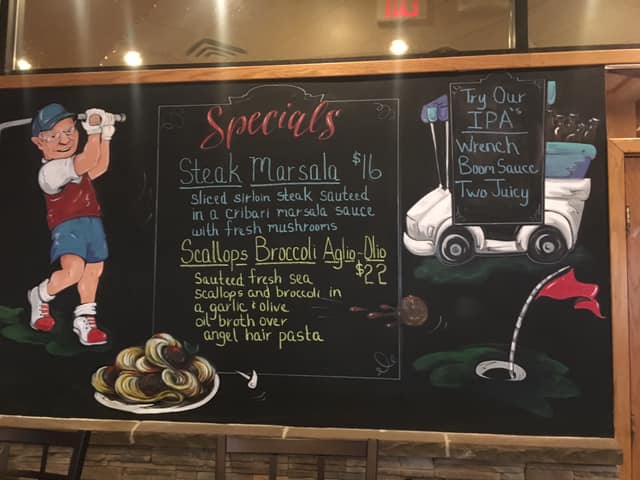 EXIT
Specials
Steak Marsala $16
sliced sirloin steak sauteed
in a cribari marsala sauce
with fresh mushrooms
Scallops Broccoli Aglio-Olio
$22
Sauteed fresh sea
scallops and broccoli in
a garlic & olive
oil broth over
angel hair pasta
Try Our
IPA's
Wrench
Boom Sauce
Two Juicy